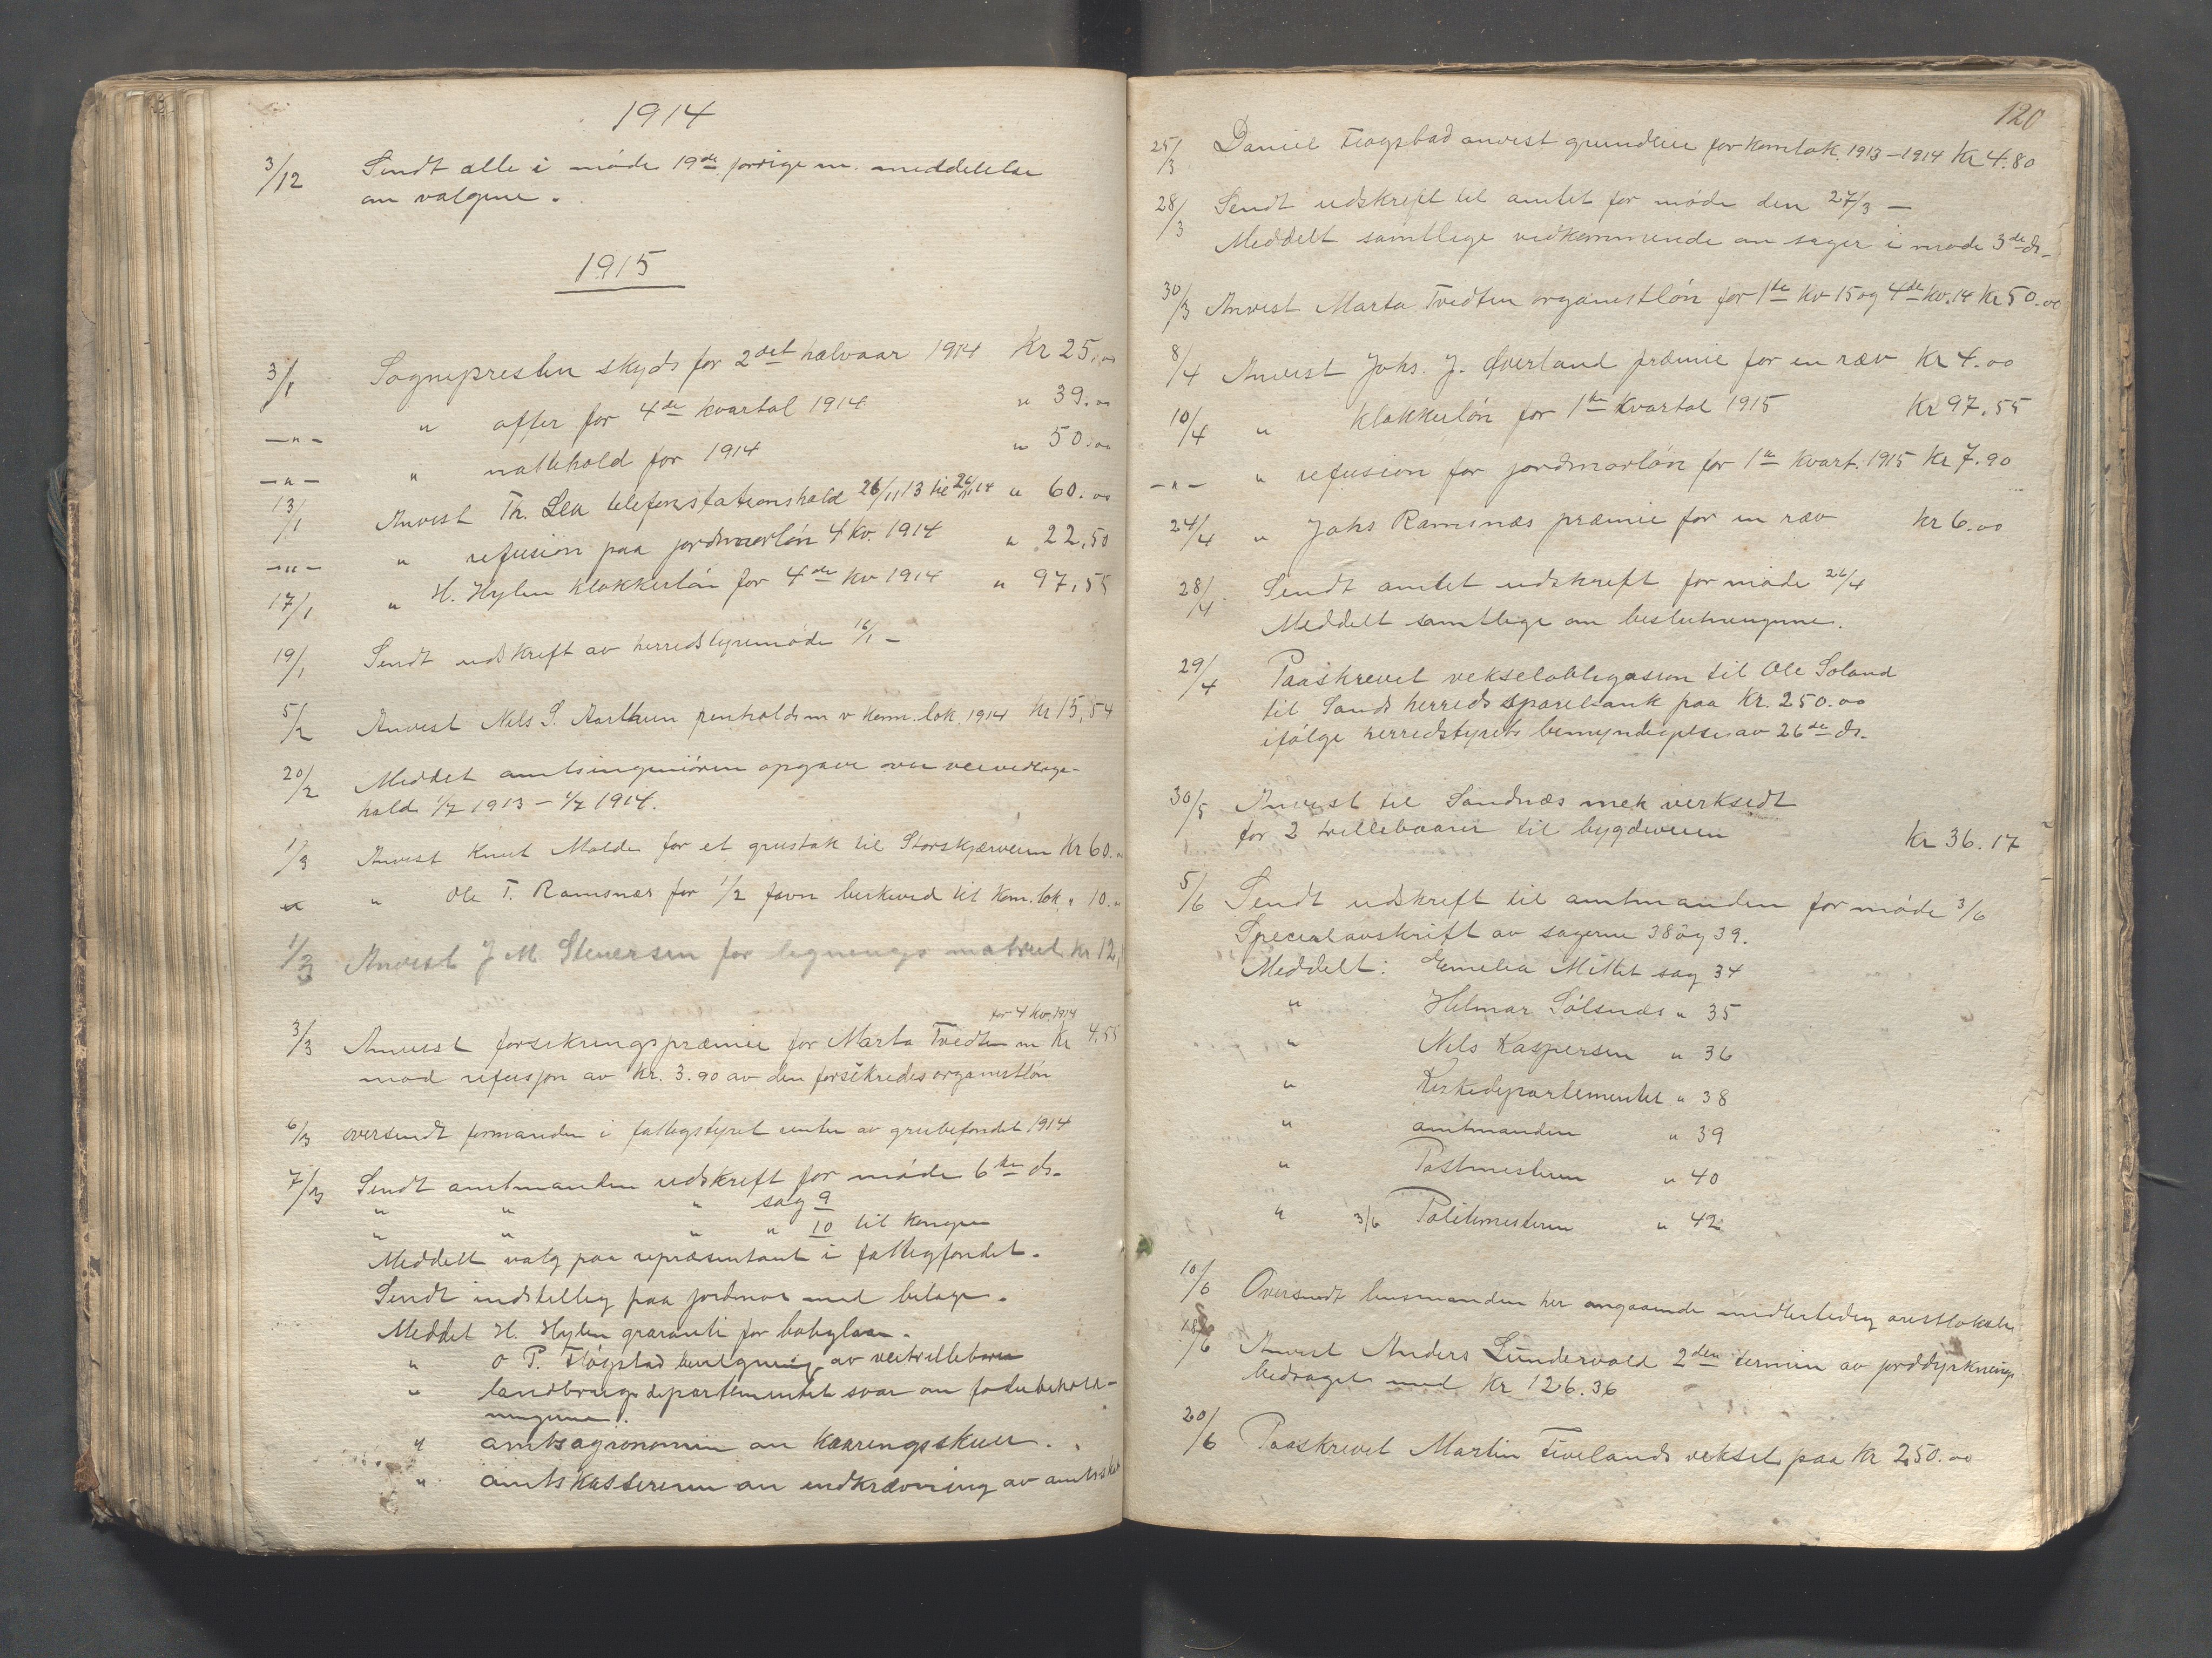 1914
3/12 Sendt alle i møde 19de forrige m. meddelelse
om valgene.
1915
3/1 Sognepresten skyds for 2det halvaar 1914 Kr 25.00
—"— " offer for 4de kvartal 1914 " 39.00
—"— " nattehold for 1914 " 50.00
13/1 Anvist Th. Lea telefonstationshold 26/11 13 til 26/11 14 " 60.00
—"— " refusion paa jordmorløn 4 Kv. 1914 " 22,50
17/1 " H. Hylen klokkerløn for 4de Kv 1914 " 97,55
19/1 Sendt udskrift av herredstyremøde 16/1 —
5/2 Anvist Nils S. Aarthun renholdsm v Kom. lok. 1914 Kr 15,54
20/2 Meddelt amtsingeniøren opgave over veivedlige-
hold 1/7 1913 – 1/7 1914.
1/3 Anvist Knut Molde for et grustak til Storskjærveien Kr 60.
" " Ole T. Ramsnæs for 1/2 favn birkeved til Kom. lok. " 10.
1/3 Anvist J M Stenersen for lignings matriel Kr 12,
for 4 Kv. 1914
3/3 Anvist forsikringspræmie for Marta Tvedten m Kr 4.55
mod refusjon av Kr. 3.90 av den forsikredes organistløn
6/3 oversendt formanden i fattigstyret renter av grubefondet 1914
7/3 Sendt amtmanden udskrift for møde 6te ds.
" " " sag 9
" " " " 10 til Kongen
Meddelt valg paa repræsentant i fattigfondet.
Sendt indstilling paa jordmor med bilage.
Meddelt H. Hylen garanti for boliglaan.
" O P. Fløgstad bevilgning av veitrillebører
" landbrugsdepartementet svar om foderbehold-
ningene.
" amtsagronomen om kaaringsskuer.
" amtskassereren om indkrævning av amtsskat
120
25/3 Daniel Fløgstad anvist grundleie for Komlok. 1913–1914 Kr 4.80
28/3 Sendt udskrift til amtet for møde den 27/3 —
Meddelt samtlige vedkommende om sager i møde 3de ds.
30/3 Anvist Marta Tvedten organistløn for 1te Kv 15 og 4de Kv. 14 Kr 50.00
8/4 Anvist Johs. J. Øverland præmie for en ræv Kr 4.00
10/4 " Klokkerløn for 1te Kvartal 1915 Kr 97,55
—"— " refusion for jordmorløn for 1te Kvart. 1915 Kr 7.90
24/4 " Johs Ramsnæs præmie for en ræv Kr 6.00
28/4 Sendt amtet udskrift for møde 26/4
Meddelt samtlige om beslutningene.
29/4 Paaskrevet vekselobligasion til Ole Soland
til Sands herreds sparebank paa Kr. 250.00
ifølge herredstyrets bemyndigelse av 26de ds.
30/5 Anvist til Sandnæs mek verksedt
for 2 trillebaarer til bygdeveien Kr 36.17
5/6 Sendt udskrift til amtmanden for møde 3/6
Specialavskrift av sagerne 38 og 39.
Meddelt: Emelia Mittet sag 34
" Helmar Sølsnæs " 35
" Nils Kaspersen " 36
" Kirkedepartementet " 38
" amtmanden " 39
" Postmesteren " 40
" 3/6 Politimesteren " 42
10/6 Oversendt lensmanden her angaaende midlertidig arestlokale
18/6 Anvist Anders Lundervold 2den termin av jorddyrknings
bidraget med Kr 126.36
20/6 Paaskrevet Martin Fivelands veksel paa Kr 250.00